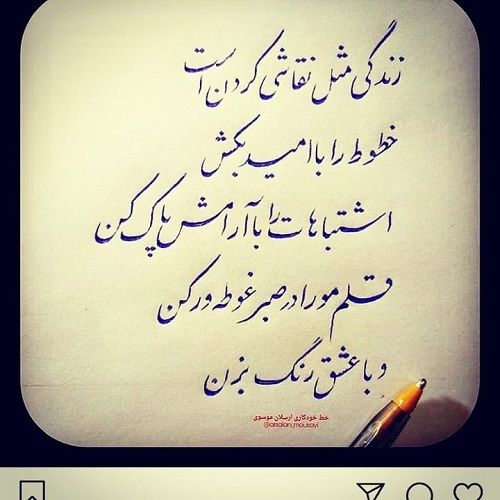 زندگی مثل نقاشی کردن است
خطوط را با امید بکش
اشتباهات را با آرامش پاک کن
قلم مو را در صبر غوطه ور کن
و با عشق رنگ بزن
خط خودکاری ارسلان موسوی
@arsalan_mousavi